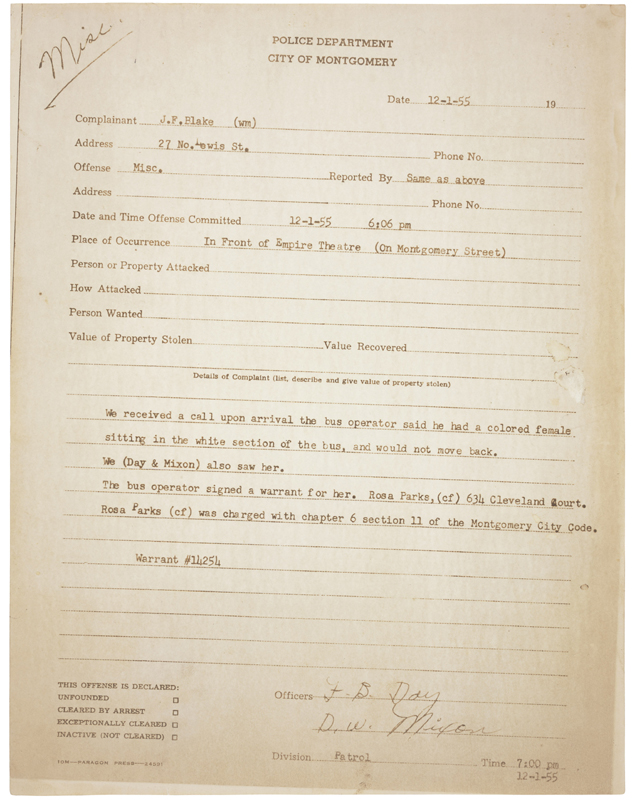 Misc.
POLICE DEPARTMENT
CITY OF MONTGOMERY
Date 12-1-55 19
Complainant J.F.Blake (wm)
Address 27 No.Lewis St. Phone No.
Offense Misc. Reported By Same as above
Address Phone No.
Date and Time Offense Committed 12-1-55 6:06 pm
Place of Occurrence In Front of Empire Theatre (On Montgomery Street)
Person or Property Attacked
How Attacked
Person Wanted
Value of Property Stolen Value Recovered
Details of Complaint (list, describe and give value of property stolen)
We received a call upon arrival the bus operator said he had a colored female
sitting in the white section of the bus, and would not move back.
We (Day & Mixon) also saw her.
The bus operator signed a warrant for her. Rosa Parks,(cf) 634 Cleveland Court.
Rosa Parks (cf) was charged with chapter 6 section 11 of the Montgomery City Code.
Warrant #14254
THIS OFFENSE IS DECLARED:
UNFOUNDED ☐
CLEARED BY ARREST ☐
EXCEPTIONALLY CLEARED ☐
INACTIVE (NOT CLEARED) ☐
Officers F. B. Day
D. W. Mixon
Division Patrol Time 7:00 pm
12-1-55
PARAGON PRESS